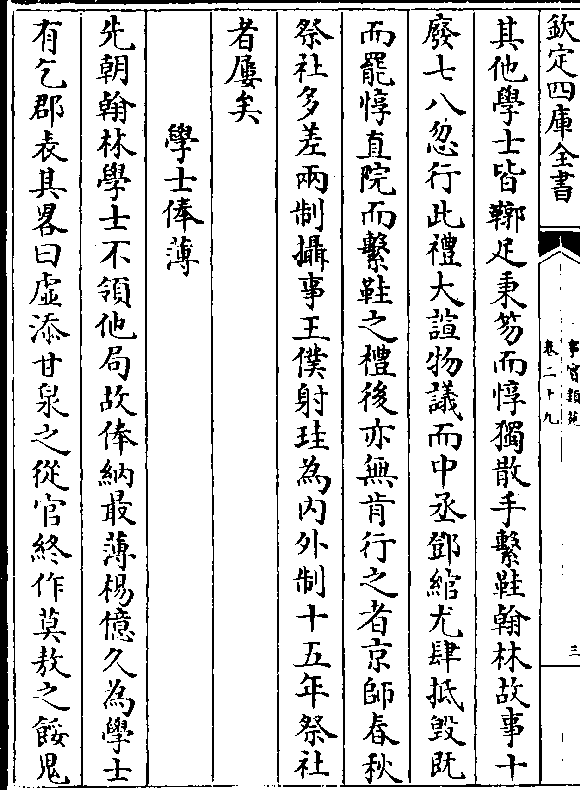 欽定四庫全書
事實類苑
卷二十九
三
其他學士皆鞹足秉笏而惇獨散手繫鞋翰林故事十
廢七八忽行此禮大諠物議而中丞鄧綰尤肆抵毀既
而罷惇直院而繫鞋之禮後亦無肯行之者京師春秋
祭社多差兩制攝事王僕射珪為内外制十五年祭社
者屢矣
學士俸薄
先朝翰林學士不領他局故俸納最薄楊億久為學士
有乞郡表其畧曰虛添甘泉之從官終作莫敖之餒鬼